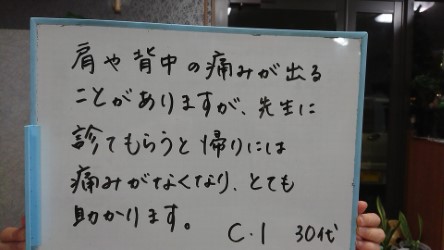 肩や背中の痛みが出る
ことがありますが、先生に
診てもらうと帰りには
痛みがなくなり、とても
助かります。
C.I 30代